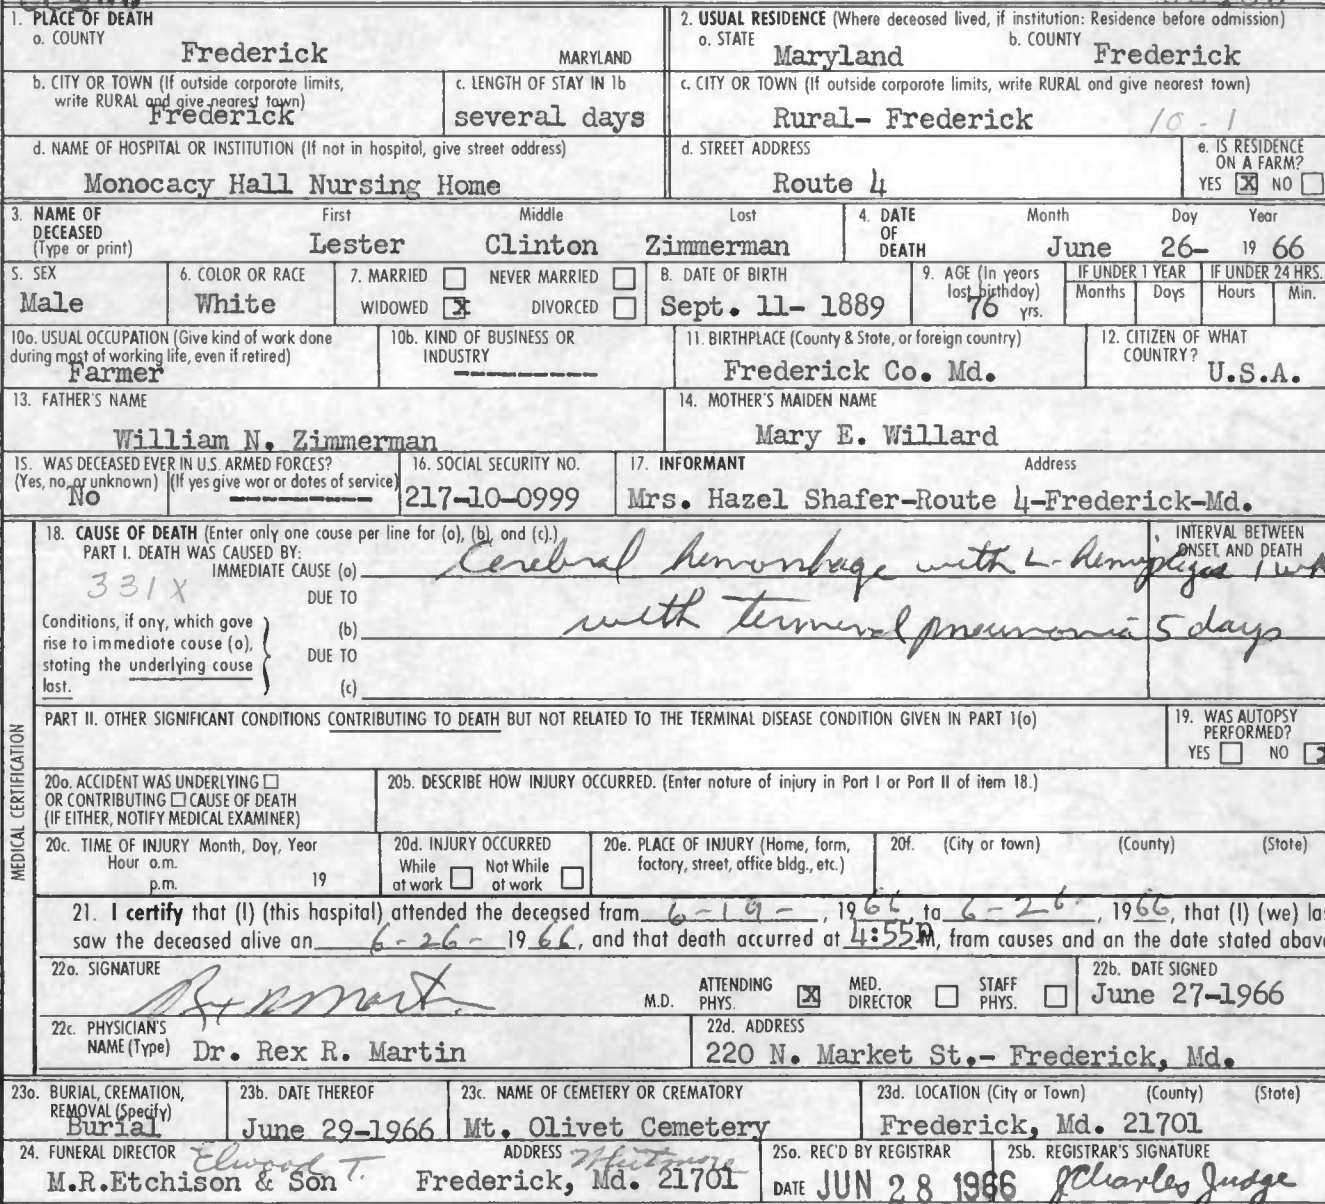 1. PLACE OF DEATH
a. COUNTY
Frederick MARYLAND
2. USUAL RESIDENCE (Where deceased lived, if institution: Residence before admission)
a. STATE Maryland b. COUNTY Frederick
b. CITY OR TOWN (If outside corporate limits,
write RURAL and give nearest town)
Frederick
c. LENGTH OF STAY IN 1b
several days
c. CITY OR TOWN (If outside corporate limits, write RURAL and give nearest town)
Rural- Frederick 10-1
d. NAME OF HOSPITAL OR INSTITUTION (If not in hospital, give street address)
Monocacy Hall Nursing Home
d. STREET ADDRESS
Route 4
e. IS RESIDENCE
ON A FARM?
YES X NO
3. NAME OF
DECEASED
(Type or print)
First Middle Last
Lester Clinton Zimmerman
4. DATE
OF
DEATH
Month Day Year
June 26- 19 66
5. SEX
Male
6. COLOR OR RACE
White
7. MARRIED NEVER MARRIED
WIDOWED X DIVORCED
8. DATE OF BIRTH
Sept. 11- 1889
9. AGE (In years
last birthday)
76 yrs.
IF UNDER 1 YEAR
Months Days
IF UNDER 24 HRS.
Hours Min.
10a. USUAL OCCUPATION (Give kind of work done
during most of working life, even if retired)
Farmer
10b. KIND OF BUSINESS OR
INDUSTRY
11. BIRTHPLACE (County & State, or foreign country)
Frederick Co. Md.
12. CITIZEN OF WHAT
COUNTRY?
U.S.A.
13. FATHER'S NAME
William N. Zimmerman
14. MOTHER'S MAIDEN NAME
Mary E. Willard
15. WAS DECEASED EVER IN U.S. ARMED FORCES?
(Yes, no, or unknown) (If yes give war or dates of service)
No
16. SOCIAL SECURITY NO.
217-10-0999
17. INFORMANT Address
Mrs. Hazel Shafer-Route 4-Frederick-Md.
MEDICAL CERTIFICATION
18. CAUSE OF DEATH (Enter only one cause per line for (a), (b), and (c).)
PART I. DEATH WAS CAUSED BY:
IMMEDIATE CAUSE (a) Cerebral hemorrhage with L- hemiplegia 1 wk
INTERVAL BETWEEN
ONSET AND DEATH
331X
DUE TO
Conditions, if any, which gave
rise to immediate cause (a),
stating the underlying cause
last.
(b) with terminal pneumonia 5 days
DUE TO
(c)
PART II. OTHER SIGNIFICANT CONDITIONS CONTRIBUTING TO DEATH BUT NOT RELATED TO THE TERMINAL DISEASE CONDITION GIVEN IN PART 1(a)
19. WAS AUTOPSY
PERFORMED?
YES NO
20a. ACCIDENT WAS UNDERLYING
OR CONTRIBUTING CAUSE OF DEATH
(IF EITHER, NOTIFY MEDICAL EXAMINER)
20b. DESCRIBE HOW INJURY OCCURRED. (Enter nature of injury in Part I or Part II of item 18.)
20c. TIME OF INJURY Month, Day, Year
Hour a.m.
p.m. 19
20d. INJURY OCCURRED
While Not While
at work at work
20e. PLACE OF INJURY (Home, farm,
factory, street, office bldg., etc.)
20f. (City or town) (County) (State)
21. I certify that (I) (this hospital) attended the deceased from 6-19-, 1966, to 6-26-, 1966, that (I) (we) la
saw the deceased alive on 6-26- 19 66, and that death occurred at 4:55 M, from causes and on the date stated above
22a. SIGNATURE
Rex R Martin M.D.
ATTENDING
PHYS. X
MED.
DIRECTOR
STAFF
PHYS.
22b. DATE SIGNED
June 27-1966
22c. PHYSICIAN'S
NAME (Type) Dr. Rex R. Martin
22d. ADDRESS
220 N. Market St.- Frederick, Md.
23a. BURIAL, CREMATION,
REMOVAL (Specify)
Burial
23b. DATE THEREOF
June 29-1966
23c. NAME OF CEMETERY OR CREMATORY
Mt. Olivet Cemetery
23d. LOCATION (City or Town) (County) (State)
Frederick, Md. 21701
24. FUNERAL DIRECTOR Elwood T. ADDRESS Whitmore
M.R.Etchison & Son Frederick, Md. 21701
25a. REC'D BY REGISTRAR
DATE JUN 28 1966
25b. REGISTRAR'S SIGNATURE
J Charles Judge